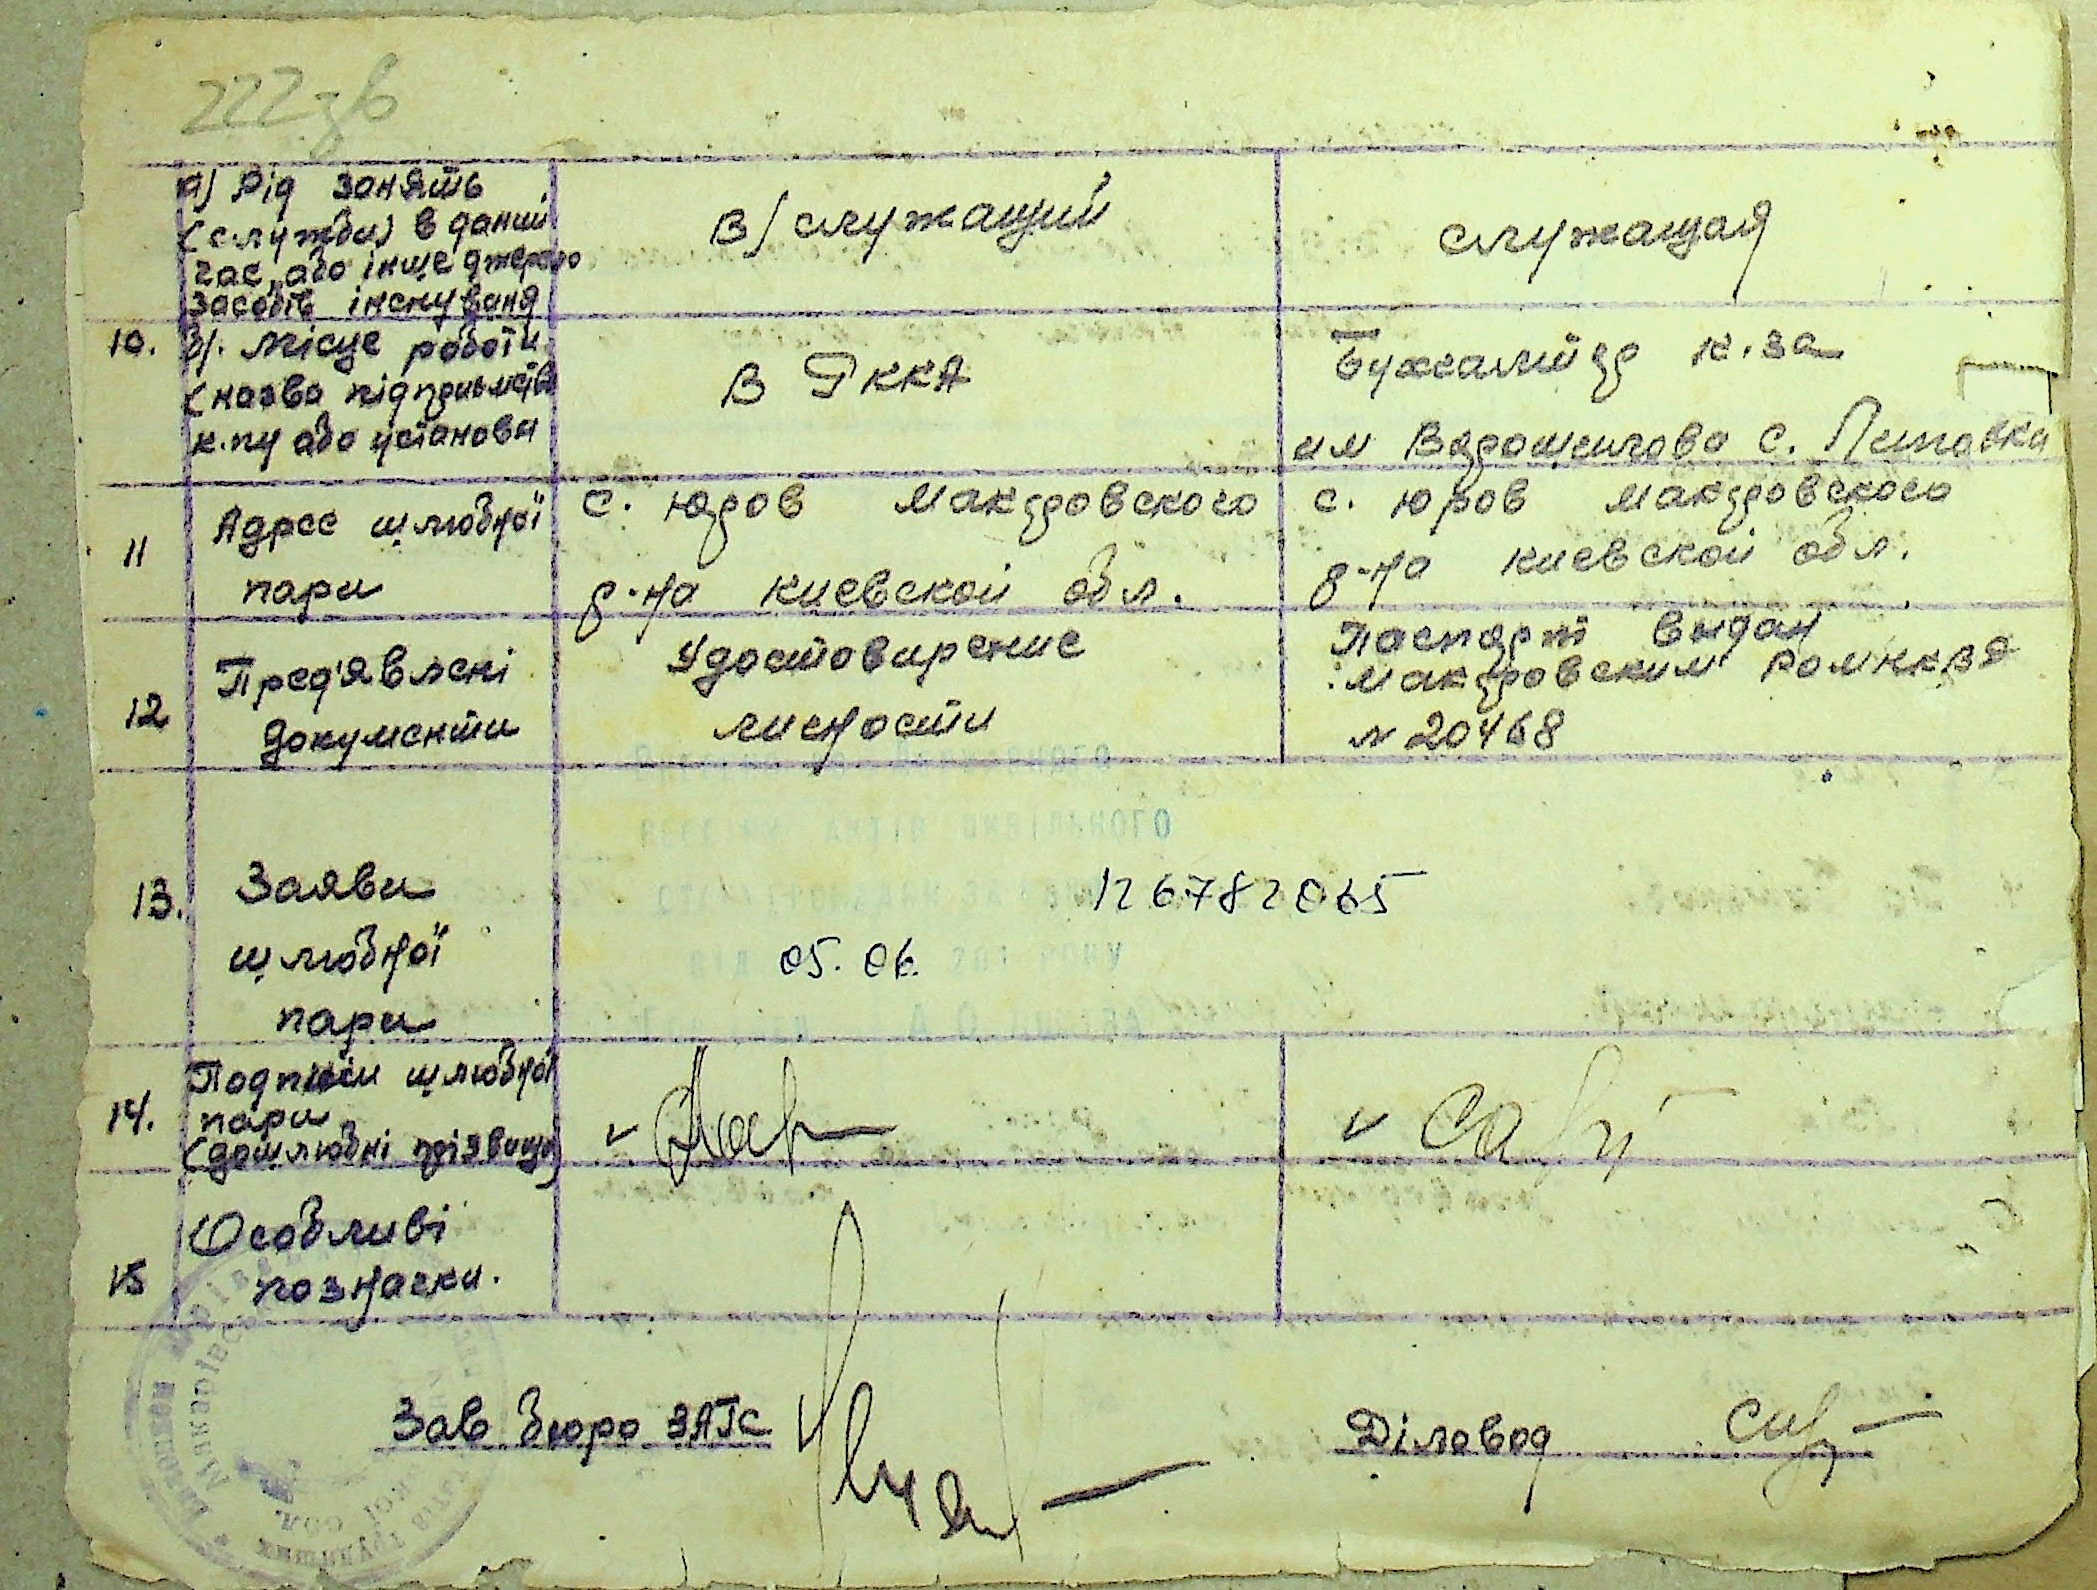 222 зв
а) Рід занять
(служби) в даний
час, або інше джерело
засобів існуваня
В/служащий
служащая
10.
б). Місце роботи
(назва підприємств
к.пу або установи
В РККА
Бухгалтер к.за
им Ворошилова с.
11
Адрес шлюбної
пари
с. Юров Макаровского
р-на Киевской обл.
с. Юров Макаровского
р-на Киевской обл.
12
Пред'явлені
документи
Удостовирение
личности
Паспорт выдан
Макаровским
N 20468
13.
Заяви
шлюбної
пари
126782065
05.06.
14.
Подписи шлюбної
пари
(дошлюбні прізвища)
15
Особливі
позначки.
Зав бюро ЗАГС
Діловод